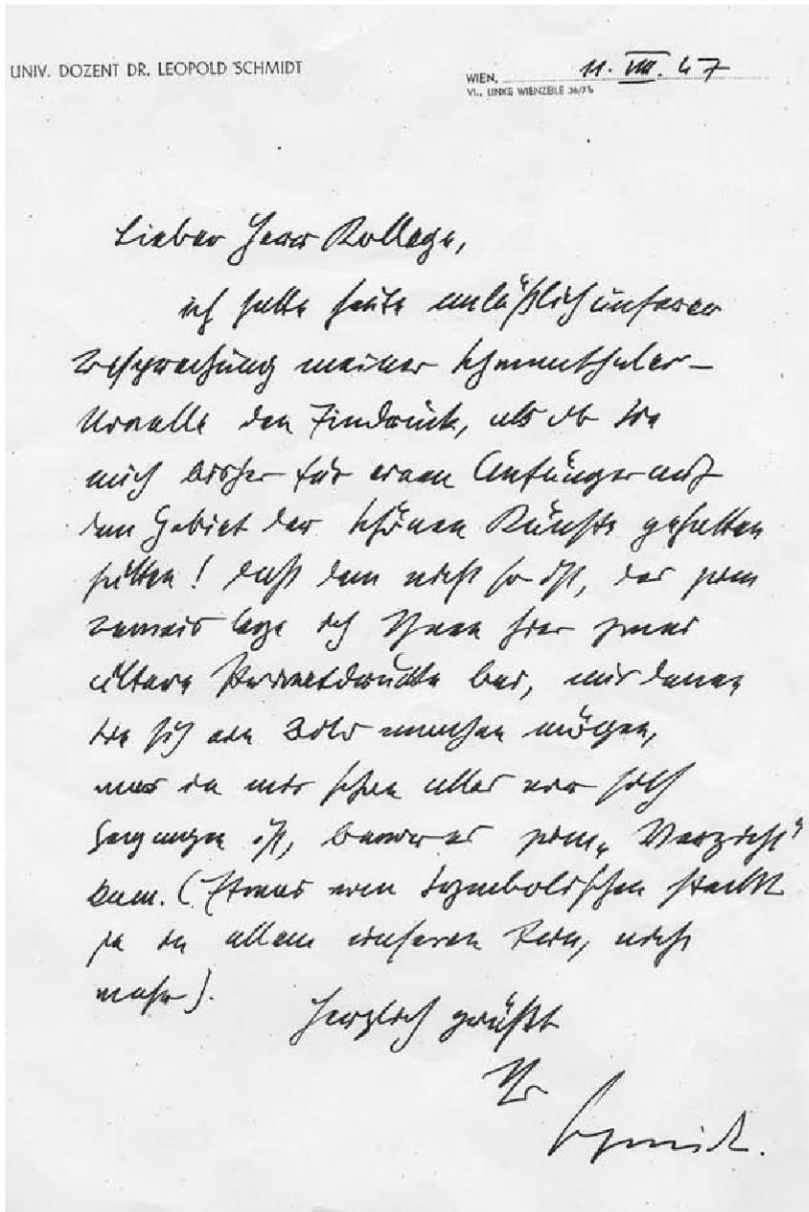 UNIV. DOZENT DR. LEOPOLD SCHMIDT
WIEN, 11. VIII. 47
VI., LINKE WIENZEILE 36/7b
Lieber Herr Kollege,
ich hatte heute anläßlich unserer
Besprechung meiner
Novelle den Eindruck, als ob Sie
mich bisher für einen Anfänger auf
dem Gebiet der schönen Künste gehalten
hätten! Daß dem nicht so ist, des zum
Beweis lege ich Ihnen hier zwei
ältere Privatdrucke bei, mit denen
Sie sich ein Bild machen mögen,
was in mir schon alles vor sich
gegangen ist, bevor es zum „Verzicht"
kam. (Etwas vom Symbolischen steckt
ja in allem unseren Tun, nicht
wahr).
Herzlich grüßt
Ihr
Schmidt.